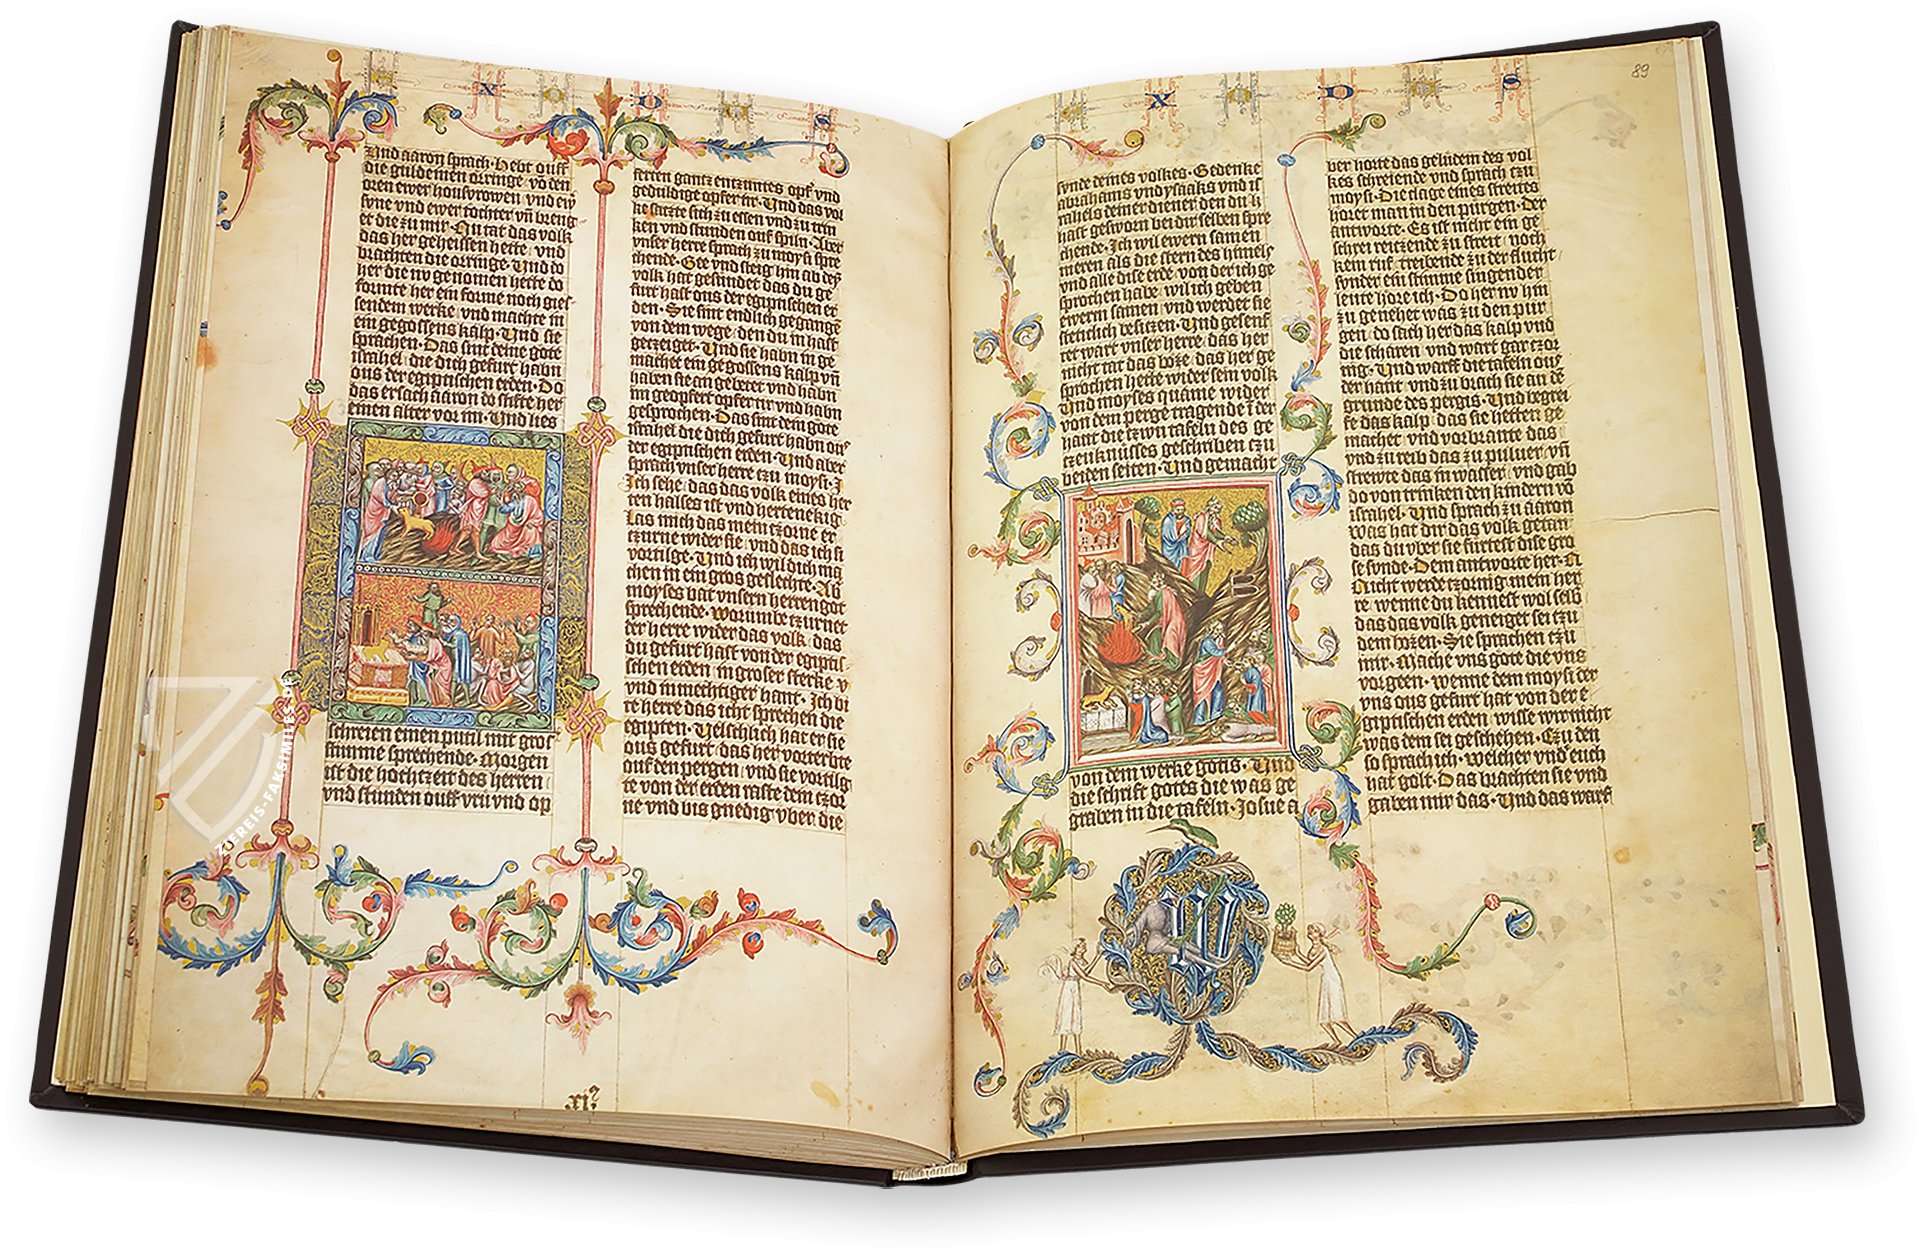 E X O D U S
Und aaron sprach · Hebt ouff
die guldeinen orrenge · vō den
oren ewer housvrowen · und ew
sune vnd ewer tochter vñ breng
et die zu mir · Nu tat das volk
das her geheissen hette · vnd
brachten die orringe · Und do
her die nv genomen hette do
formte her ein forme noch gies
sendem werke · vnd machte in
ein gegossens kalp · Und sie
sprachen · Das sint deine gote
israhel · die dich gefurt habn
ous der egiptischen erden · Do
das ersach aaron do stifte her
einen alter vor im · Und lies
schreien einen putil mit gros
stimme sprechende · Morgen
ist die hochtzeit des herren
vnd stunden ouff vru vnd op
ferten gantz entzuntes opf vnd
geduldige opfer im · Und das vol
ke satzte sich zu essen vnd zu trin
ken vnd stunden ouf spiln · Aber
vnser herre sprach zu moysi spre
chende · Gee vnd steig hin ab dey
volk hat gesundet das du ge
furt hast ous der egiptischen er
den · Sie sint endlich gegangē
von dem wege den du in hast
getzeiget · Und sie habn in ge
machet ein gegossens kalp vñ
haben sie an gebetet vnd habn
im geopfert opfer im vnd habn
gesprochen · Das sint dem gote
israhel die dich gefurt habn ous
der egiptischen erden · Und aber
sprach vnser herre tzu moysi · I
Ich sehe das das volk eines her
ten halses ist vnd hertenekig
Las mich das mein tzorne er
tzurne wider sie vnd das ich si
vortilge · Und ich wil dich ma
chen in ein gros geslechte · Ab
moyses bat vnsern herren got
sprechende · Worumbe tzurnet
der herre wider das volk das
du gefurt hast von der egiptis
schen erden in groser sterke v
vnd in mechtiger hant · Ich bi
te herre das icht sprechen die
egipten · Velschlich hat er sie
ous gefurt das her vorterbte
ouf den pergen vnd sie vortilg
te von der erden raste dem tzor
ne vnd bis gnedig vber die
xi⁹
E X O D U S
89
sunde deines volkes · Gedenke
abrahams vnd ysaaks vnd is
rahels deiner diener den du h
hast gesworn bei dir selben spre
chende · Ich wil ewern samen
meren als die stern des himels
vnd alle dise erde von der ich ge
sprochen habe wil ich geben
ewerm samen vnd werdet sie
steticlich besitzen · Und gesenf
tet wart vnser herre das her
nicht tat das boze das her ge
sprochen hette wider sein volk
Und moyses quame wider
von dem perge tragende ī der
hant die tzwu tafeln des ge
tzeuknüsses geschriben tzu
beiden seiten · Und gemacht
von dem werke gotis · Und
die schrift gotes die was ge
graben in die tafeln · Josue a
ber horte das gelüdem des vol
kes schreiende vnd sprach tzu
moysi · Die clage eines streites
horet man in den purgen · Der
antworte · Es ist nicht ein ge
schrei reitzende zu streit · noch
kein ruf treibende zu der flucht
sunder ein stimme singender
leute hore ich · Do her nv hin
zu geneher was zu den pur
gen · do sach her das kalp vnd
die scharen · vnd wart gar tzor
nig · Und warff die tafeln ous
der hant vnd zu brach sie an dē
grunde des pergis · Und begrei
fe das kalp · das sie hetten ge
machet vnd vorbrante das
vnd zu reib das zu puluer vñ
strewte das in wasser vnd gab
do von trinken den kindern vō
israhel · Und sprach zu aaron
Was hat dir das volk getan
das du vber sie furtest dise gro
se sunde · Dem antworte her · N
Nicht werde tzornig mein her
re · wenne du kennest wol selb
das volk das geneiget sei tzu
dem bozen · Sie sprachen tzu
mir · Mache vns gote die vns
vorgeen · wenne dem moysi der
vns ous gefurt hat von der e
egiptischen erden wisse wir nicht
was dem sei geschehen · Tzu den
so sprach ich · welcher vnd euch
hat golt · Das brachten sie vnd
gaben mir das · Und das warf
W
ZIEREIS-FAKSIMILES.DE